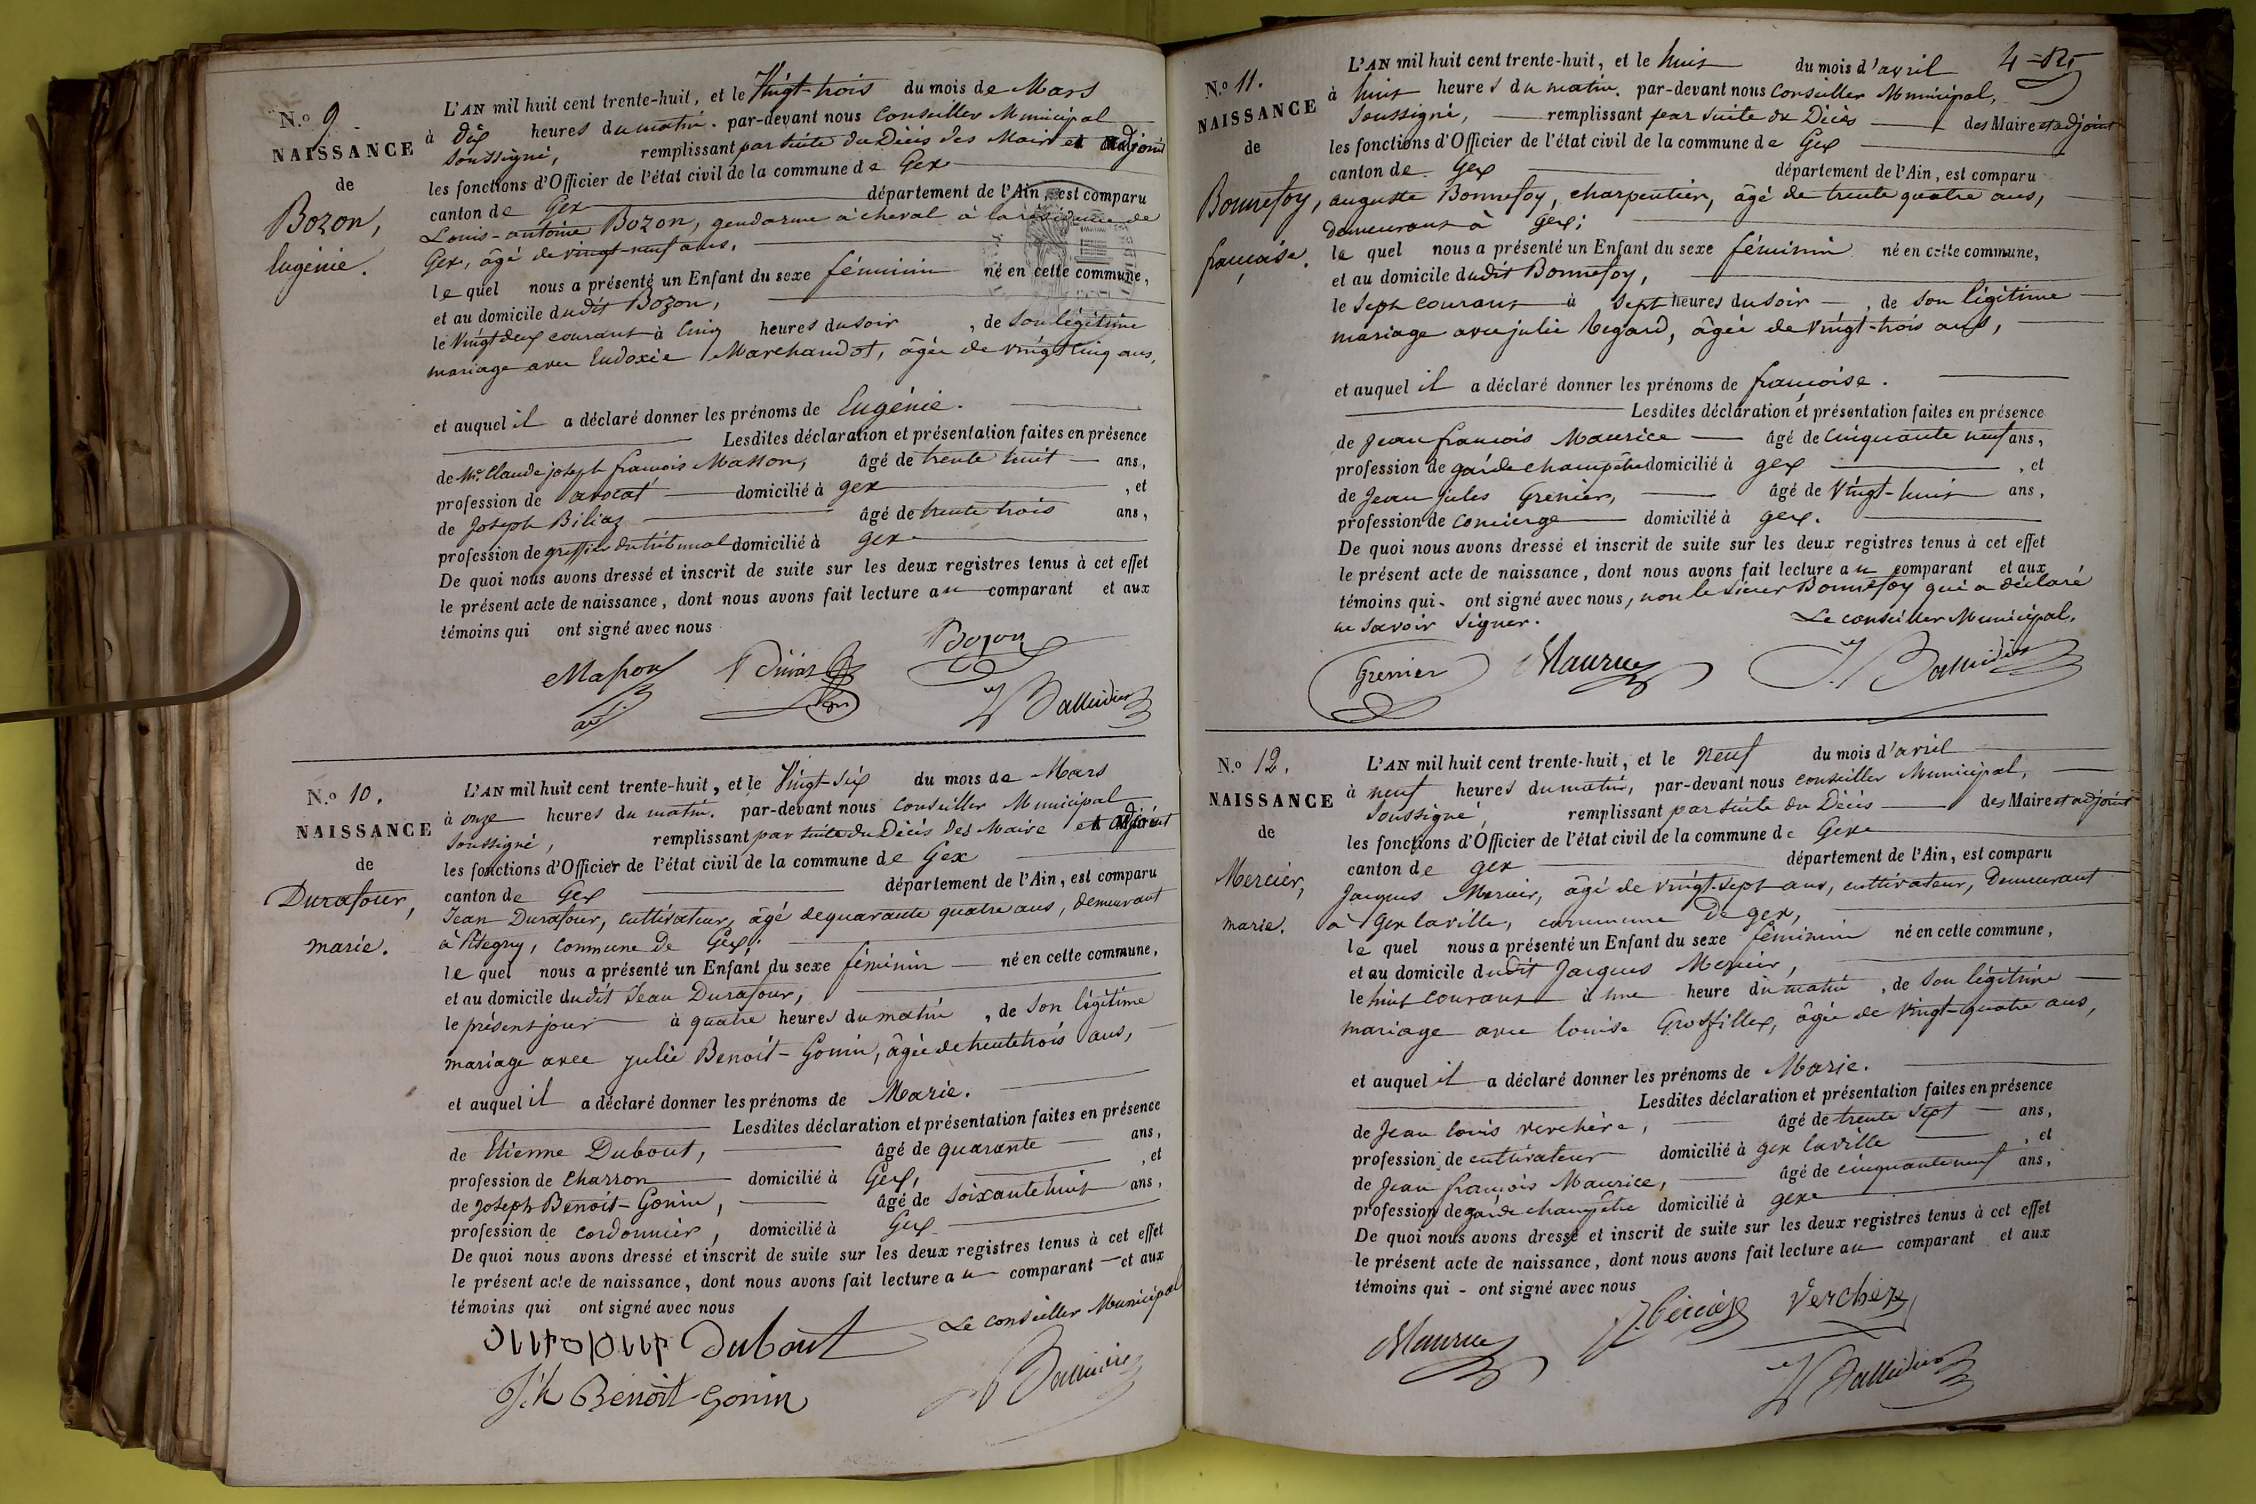 N.º 9
NAISSANCE
de
Bozon,
Eugénie.
L'AN mil huit cent trente-huit, et le Vingt-trois du mois de Mars
à dix heures du matin. par-devant nous Conseiller Municipal
soussigné, remplissant par suite du Décès des Maire et adjoint
les fonctions d'Officier de l'état civil de la commune de Gex
canton de Gex département de l'Ain, est comparu
Louis-antoine Bozon, gendarme à cheval à la résidence de
Gex, âgé de vingt-neuf ans,
le quel nous a présenté un Enfant du sexe féminin né en cette commune,
et au domicile dudit Bozon,
le Vingt deux courant à Cinq heures du soir, de son légitime
mariage avec Eudoxie Marchandot, âgée de vingt cinq ans,
et auquel il a déclaré donner les prénoms de Eugénie.
Lesdites déclaration et présentation faites en présence
de Mr. Claude joseph françois Masson, âgé de trente huit ans,
profession de avocat domicilié à gex, et
de Joseph Biliaz âgé de trente trois ans,
profession de greffier du tribunal domicilié à gex
De quoi nous avons dressé et inscrit de suite sur les deux registres tenus à cet effet
le présent acte de naissance, dont nous avons fait lecture au comparant et aux
témoins qui ont signé avec nous
Masson Bozon
N.º 10.
NAISSANCE
de
Durafour,
marie.
L'AN mil huit cent trente-huit, et le Vingt-six du mois de Mars
à onze heures du matin. par-devant nous Conseiller Municipal
soussigné, remplissant par suite du Décès des Maire et adjoint
les fonctions d'Officier de l'état civil de la commune de Gex
canton de Gex département de l'Ain, est comparu
Jean Durafour, cultivateur, âgé de quarante quatre ans, demeurant
à Pitegny, commune de Gex;
le quel nous a présenté un Enfant du sexe féminin né en cette commune,
et au domicile dudit Jean Durafour,
le présent jour à quatre heures du matin, de son légitime
mariage avec julie Benoit-Gonin, âgée de trente trois ans,
et auquel il a déclaré donner les prénoms de Marie.
Lesdites déclaration et présentation faites en présence
de Etienne Dubout, âgé de quarante ans,
profession de Charron domicilié à Gex, et
de Joseph Benoit-Gonin, âgé de soixante huit ans,
profession de cordonnier, domicilié à Gex
De quoi nous avons dressé et inscrit de suite sur les deux registres tenus à cet effet
le présent acte de naissance, dont nous avons fait lecture au comparant et aux
témoins qui ont signé avec nous
Le conseiller Municipal
Durafour Dubout
Jh Benoit-Gonin
4-
N.º 11.
NAISSANCE
de
Bonnefoy,
françoise.
L'AN mil huit cent trente-huit, et le huit du mois d'avril
à huit heures du matin. par-devant nous Conseiller Municipal,
soussigné, remplissant par suite du Décès des Maire et adjoint
les fonctions d'Officier de l'état civil de la commune de Gex
canton de Gex département de l'Ain, est comparu
auguste Bonnefoy, charpentier, âgé de trente quatre ans,
demeurant à Gex;
le quel nous a présenté un Enfant du sexe féminin né en cette commune,
et au domicile dudit Bonnefoy,
le sept courant à sept heures du soir, de son légitime
mariage avec julie Regard, âgée de vingt-trois ans,
et auquel il a déclaré donner les prénoms de françoise.
Lesdites déclaration et présentation faites en présence
de Jean françois Maurice âgé de cinquante neuf ans,
profession de garde champêtre domicilié à gex, et
de Jean jules Grenier, âgé de Vingt-huit ans,
profession de concierge domicilié à gex.
De quoi nous avons dressé et inscrit de suite sur les deux registres tenus à cet effet
le présent acte de naissance, dont nous avons fait lecture au comparant et aux
témoins qui ont signé avec nous, non le sieur Bonnefoy qui a déclaré
ne savoir signer.
Le conseiller Municipal,
Grenier Maurice
N.º 12.
NAISSANCE
de
Mercier,
marie.
L'AN mil huit cent trente-huit, et le neuf du mois d'avril
à neuf heures du matin, par-devant nous conseiller Municipal,
soussigné, remplissant par suite du Décès des Maire et adjoint
les fonctions d'Officier de l'état civil de la commune de Gex
canton de gex département de l'Ain, est comparu
Jacques Mercier, âgé de vingt-sept ans, cultivateur, demeurant
à Gex laville, commune de gex,
le quel nous a présenté un Enfant du sexe féminin né en cette commune,
et au domicile dudit Jacques Mercier,
le huit courant à une heure du matin, de son légitime
mariage avec louise Grosfillex, âgée de vingt-quatre ans,
et auquel il a déclaré donner les prénoms de Marie.
Lesdites déclaration et présentation faites en présence
de Jean louis verchère, âgé de trente sept ans,
profession de cultivateur domicilié à gex laville, et
de Jean françois Maurice, âgé de cinquante neuf ans,
profession de garde champêtre domicilié à gex
De quoi nous avons dressé et inscrit de suite sur les deux registres tenus à cet effet
le présent acte de naissance, dont nous avons fait lecture au comparant et aux
témoins qui - ont signé avec nous
Maurice Mercier Vercher